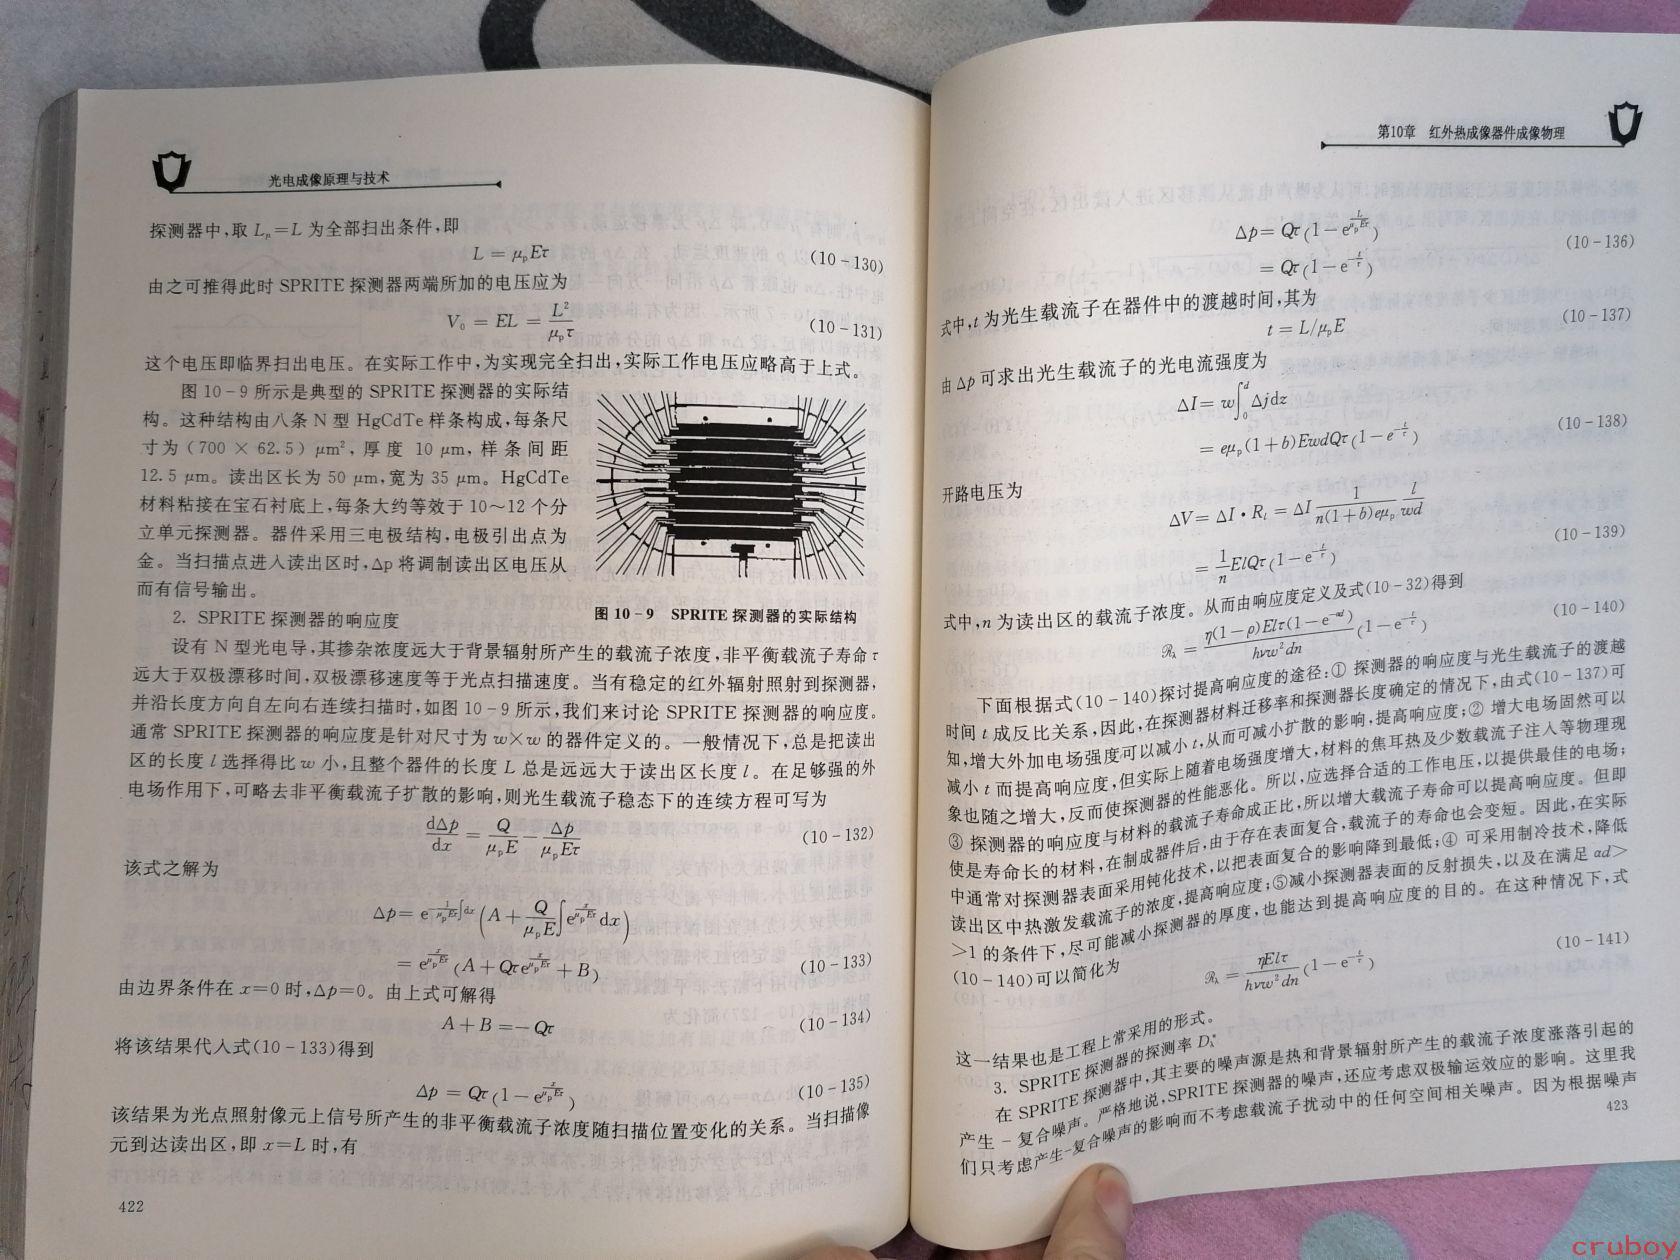 光电成像原理与技术
探测器中,取 Lₙ=L 为全部扫出条件,即
L = μₚEτ (10-130)
由之可推得此时 SPRITE 探测器两端所加的电压应为
V₀ = EL = L²/μₚτ (10-131)
这个电压即临界扫出电压。在实际工作中,为实现完全扫出,实际工作电压应略高于上式。
图 10-9 所示是典型的 SPRITE 探测器的实际结
构。这种结构由八条 N 型 HgCdTe 样条构成,每条尺
寸为(700 × 62.5) μm²,厚度 10 μm,样条间距
12.5 μm。读出区长为 50 μm,宽为 35 μm。HgCdTe
材料粘接在宝石衬底上,每条大约等效于 10～12 个分
立单元探测器。器件采用三电极结构,电极引出点为
金。当扫描点进入读出区时,Δp 将调制读出区电压从
而有信号输出。
图 10-9 SPRITE 探测器的实际结构
2. SPRITE 探测器的响应度
设有 N 型光电导,其掺杂浓度远大于背景辐射所产生的载流子浓度,非平衡载流子寿命 τ
远大于双极漂移时间,双极漂移速度等于光点扫描速度。当有稳定的红外辐射照射到探测器,
并沿长度方向自左向右连续扫描时,如图 10-9 所示,我们来讨论 SPRITE 探测器的响应度。
通常 SPRITE 探测器的响应度是针对尺寸为 w×w 的器件定义的。一般情况下,总是把读出
区的长度 l 选择得比 w 小,且整个器件的长度 L 总是远远大于读出区长度 l。在足够强的外
电场作用下,可略去非平衡载流子扩散的影响,则光生载流子稳态下的连续方程可写为
dΔp/dx = Q/μₚE − Δp/μₚEτ (10-132)
该式之解为
Δp = e^(−1/μₚEτ ∫dx) (A + Q/μₚE ∫e^(x/μₚEτ) dx)
= e^(x/μₚEτ) (A + Qτe^(x/μₚEτ) + B) (10-133)
由边界条件在 x=0 时,Δp=0。由上式可解得
A+B=−Qτ (10-134)
将该结果代入式(10-133)得到
Δp = Qτ(1−e^(x/μₚEτ)) (10-135)
该结果为光点照射像元上信号所产生的非平衡载流子浓度随扫描位置变化的关系。当扫描像
元到达读出区,即 x=L 时,有
422
第10章 红外热成像器件成像物理
Δp = Qτ(1−e^(L/μₚEτ))
= Qτ(1−e^(−t/τ)) (10-136)
式中,t 为光生载流子在器件中的渡越时间,其为
t = L/μₚE (10-137)
由 Δp 可求出光生载流子的光电流强度为
ΔI = w∫₀ᵈ Δjdz
= eμₚ(1+b)EwdQτ(1−e^(−t/τ)) (10-138)
开路电压为
ΔV = ΔI · Rₗ = ΔI 1/(n(1+b)eμₚ) l/wd
= 1/n ElQτ(1−e^(−t/τ)) (10-139)
式中,n 为读出区的载流子浓度。从而由响应度定义及式(10-32)得到
ℛλ = η(1−ρ)Elτ(1−e^(−αd))/hνw²dn (1−e^(−t/τ)) (10-140)
下面根据式(10-140)探讨提高响应度的途径:① 探测器的响应度与光生载流子的渡越
时间 t 成反比关系,因此,在探测器材料迁移率和探测器长度确定的情况下,由式(10-137)可
知,增大外加电场强度可以减小 t,从而可减小扩散的影响,提高响应度;② 增大电场固然可以
减小 t 而提高响应度,但实际上随着电场强度增大,材料的焦耳热及少数载流子注入等物理现
象也随之增大,反而使探测器的性能恶化。所以,应选择合适的工作电压,以提供最佳的电场;
③ 探测器的响应度与材料的载流子寿命成正比,所以增大载流子寿命可以提高响应度。但即
使是寿命长的材料,在制成器件后,由于存在表面复合,载流子的寿命也会变短。因此,在实际
中通常对探测器表面采用钝化技术,以把表面复合的影响降到最低;④ 可采用制冷技术,降低
读出区中热激发载流子的浓度,提高响应度;⑤减小探测器表面的反射损失,以及在满足 αd>
>1 的条件下,尽可能减小探测器的厚度,也能达到提高响应度的目的。在这种情况下,式
(10-140)可以简化为
ℛλ = ηElτ/hνw²dn (1−e^(−t/τ)) (10-141)
这一结果也是工程上常采用的形式。
3. SPRITE 探测器的探测率 Dλ*
在 SPRITE 探测器中,其主要的噪声源是热和背景辐射所产生的载流子浓度涨落引起的
产生－复合噪声。严格地说,SPRITE 探测器的噪声,还应考虑双极输运效应的影响。这里我
们只考虑产生-复合噪声的影响而不考虑载流子扰动中的任何空间相关噪声。因为根据噪声
423
cruboy